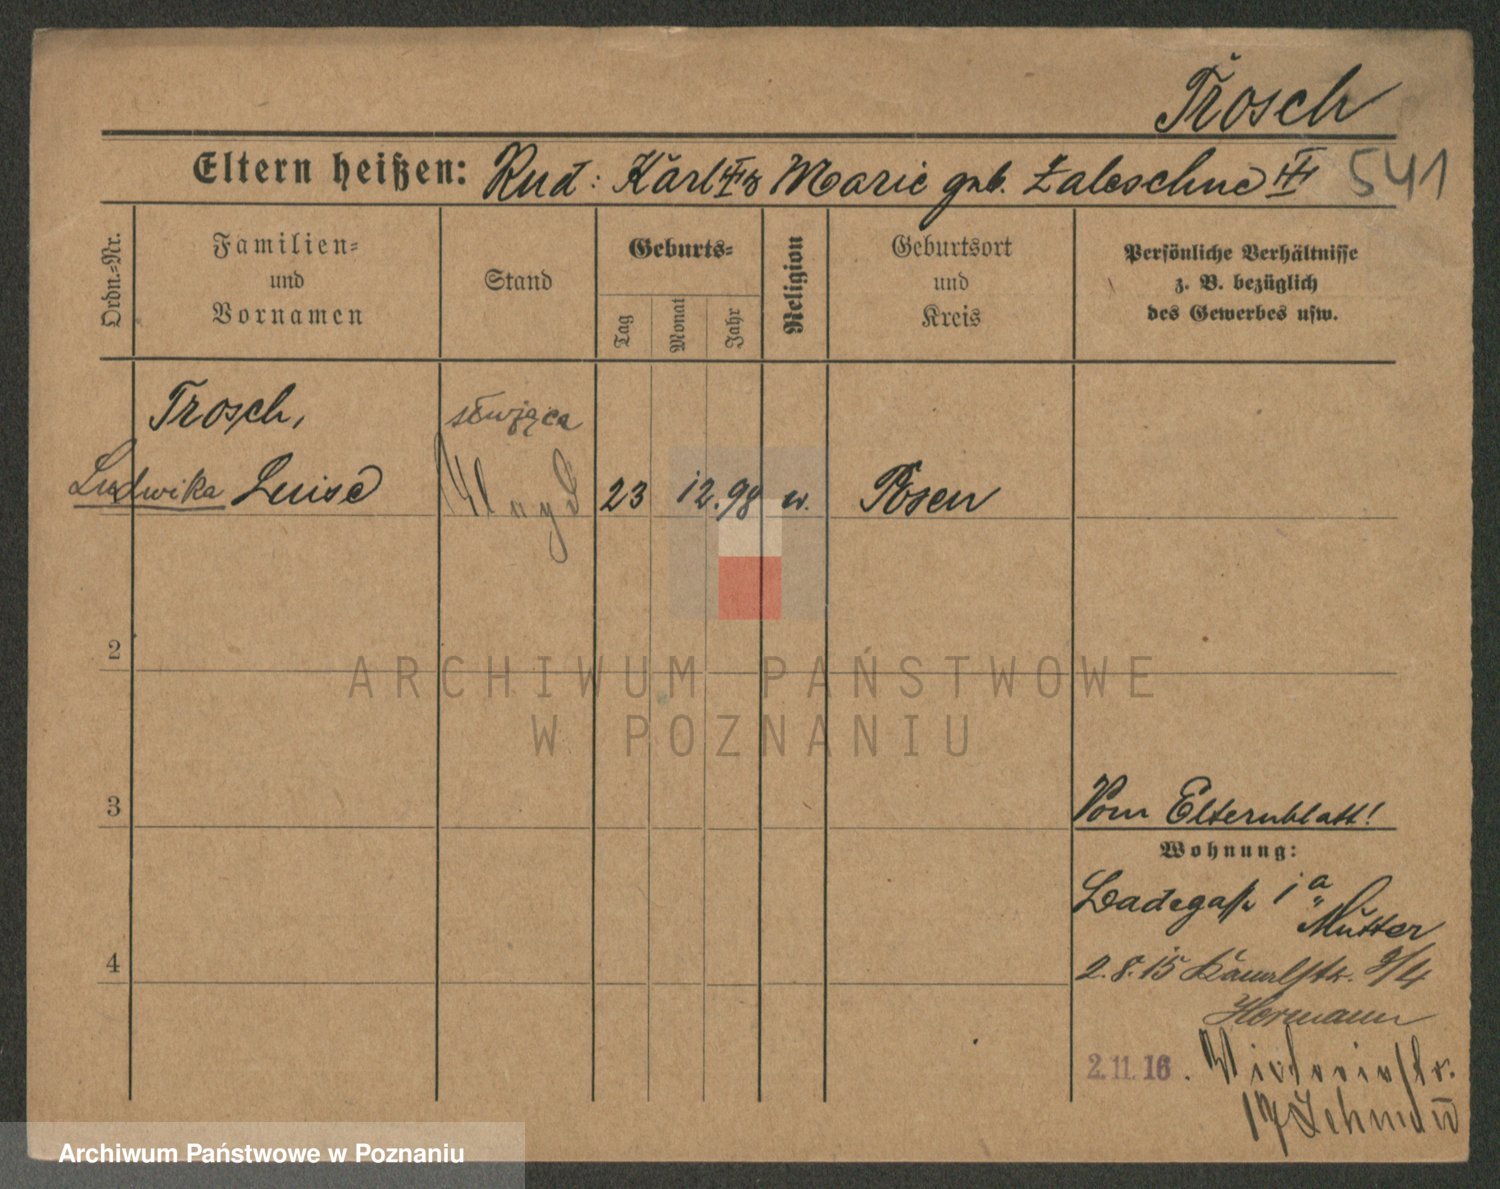 Trosch
Eltern heißen: Rud: Karl u. Marie geb. Zaleschne 541
Ordn.-Nr.
Familien-
und
Vornamen
Stand
Geburts-
Tag
Monat
Jahr
Religion
Geburtsort
und
Kreis
Persönliche Verhältnisse
z. B. bezüglich
des Gewerbes usw.
Trosch,
służąca
Ludwika Luise
Magd
23 12. 98
Posen
2
3
Vom Elternblatt!
Wohnung:
Ladegaß 1a
Mutter
4
2.8.15
Hormann
2.11.16. Victoriastr.
17
ARCHIWUM PAŃSTWOWE
W POZNANIU
Archiwum Państwowe w Poznaniu